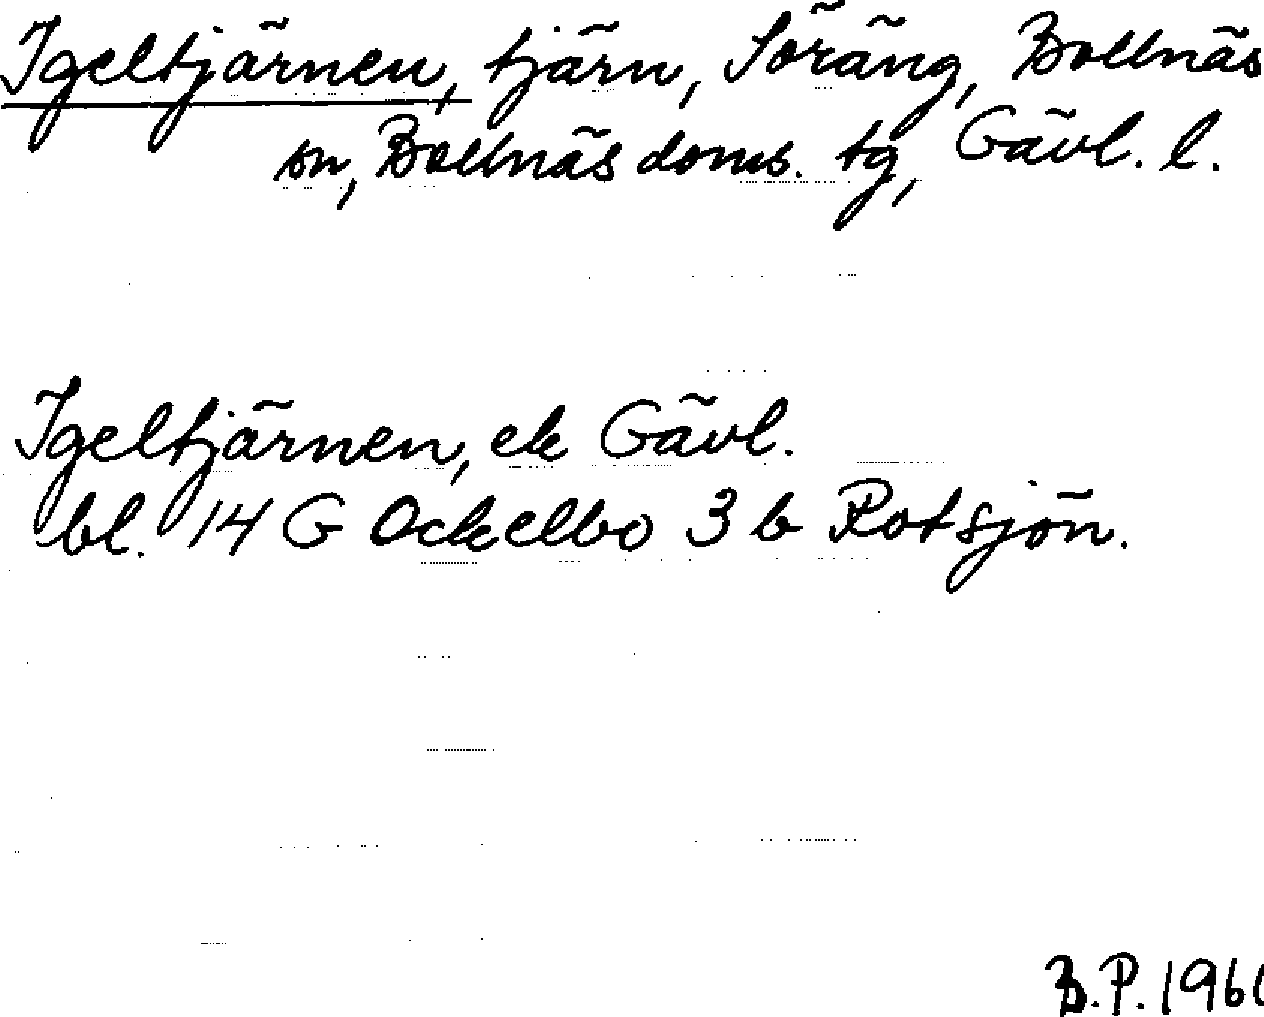 Igeltjärnen, tjärn, Söräng, Bollnäs
sn, Bollnäs doms. tg, Gävl. l.
Igeltjärnen, ek Gävl.
bl. 14 G Ockelbo 3 b Rotsjön.
B.P.